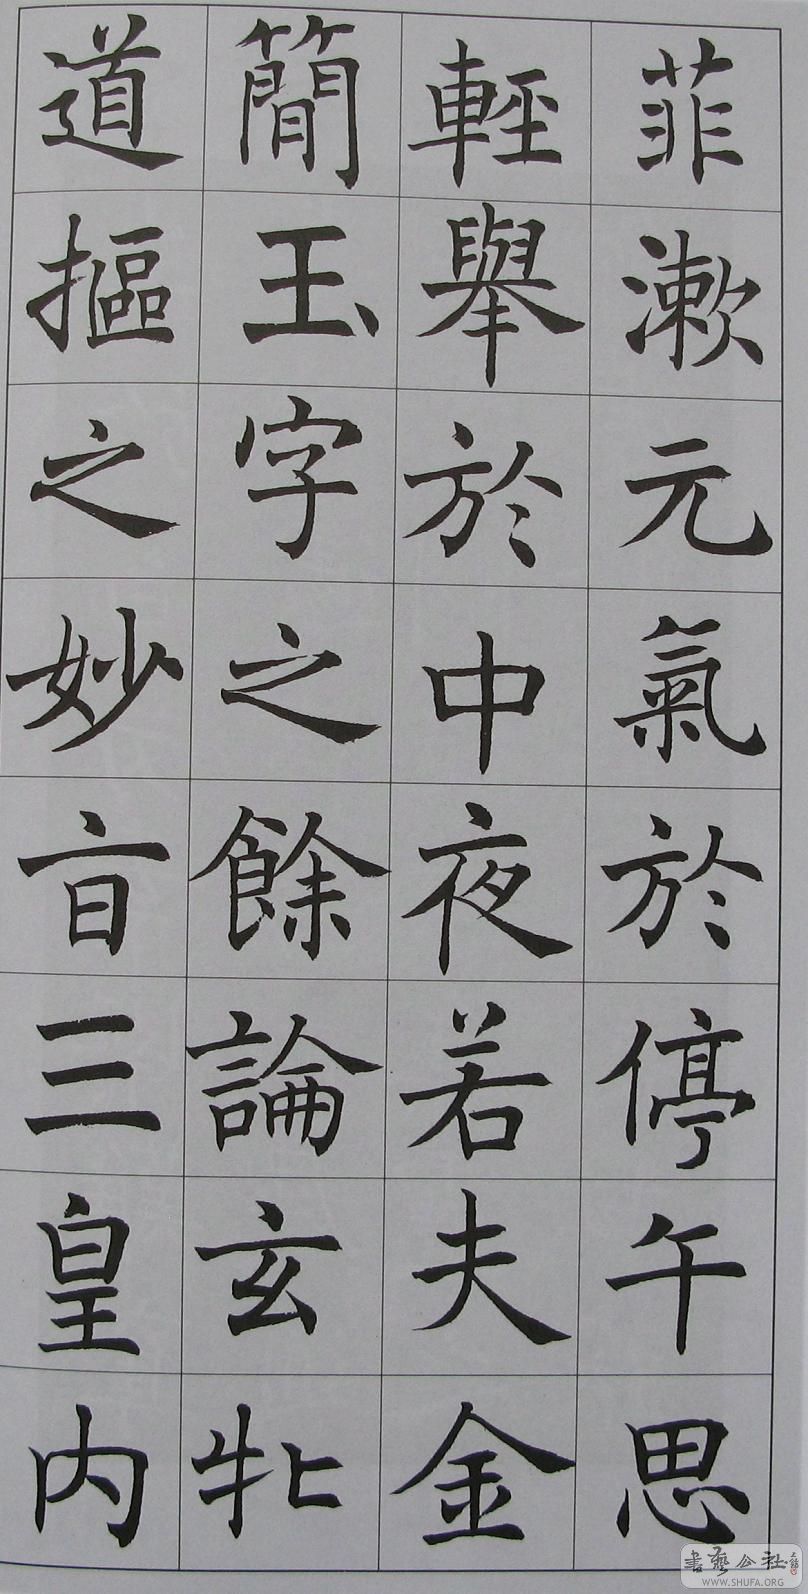 菲漱元氣於停午思
輕舉於中夜若夫金
簡玉字之餘論玄牝
道摳之妙旨三皇内
書藝公社
WWW.SHUFA.ORG